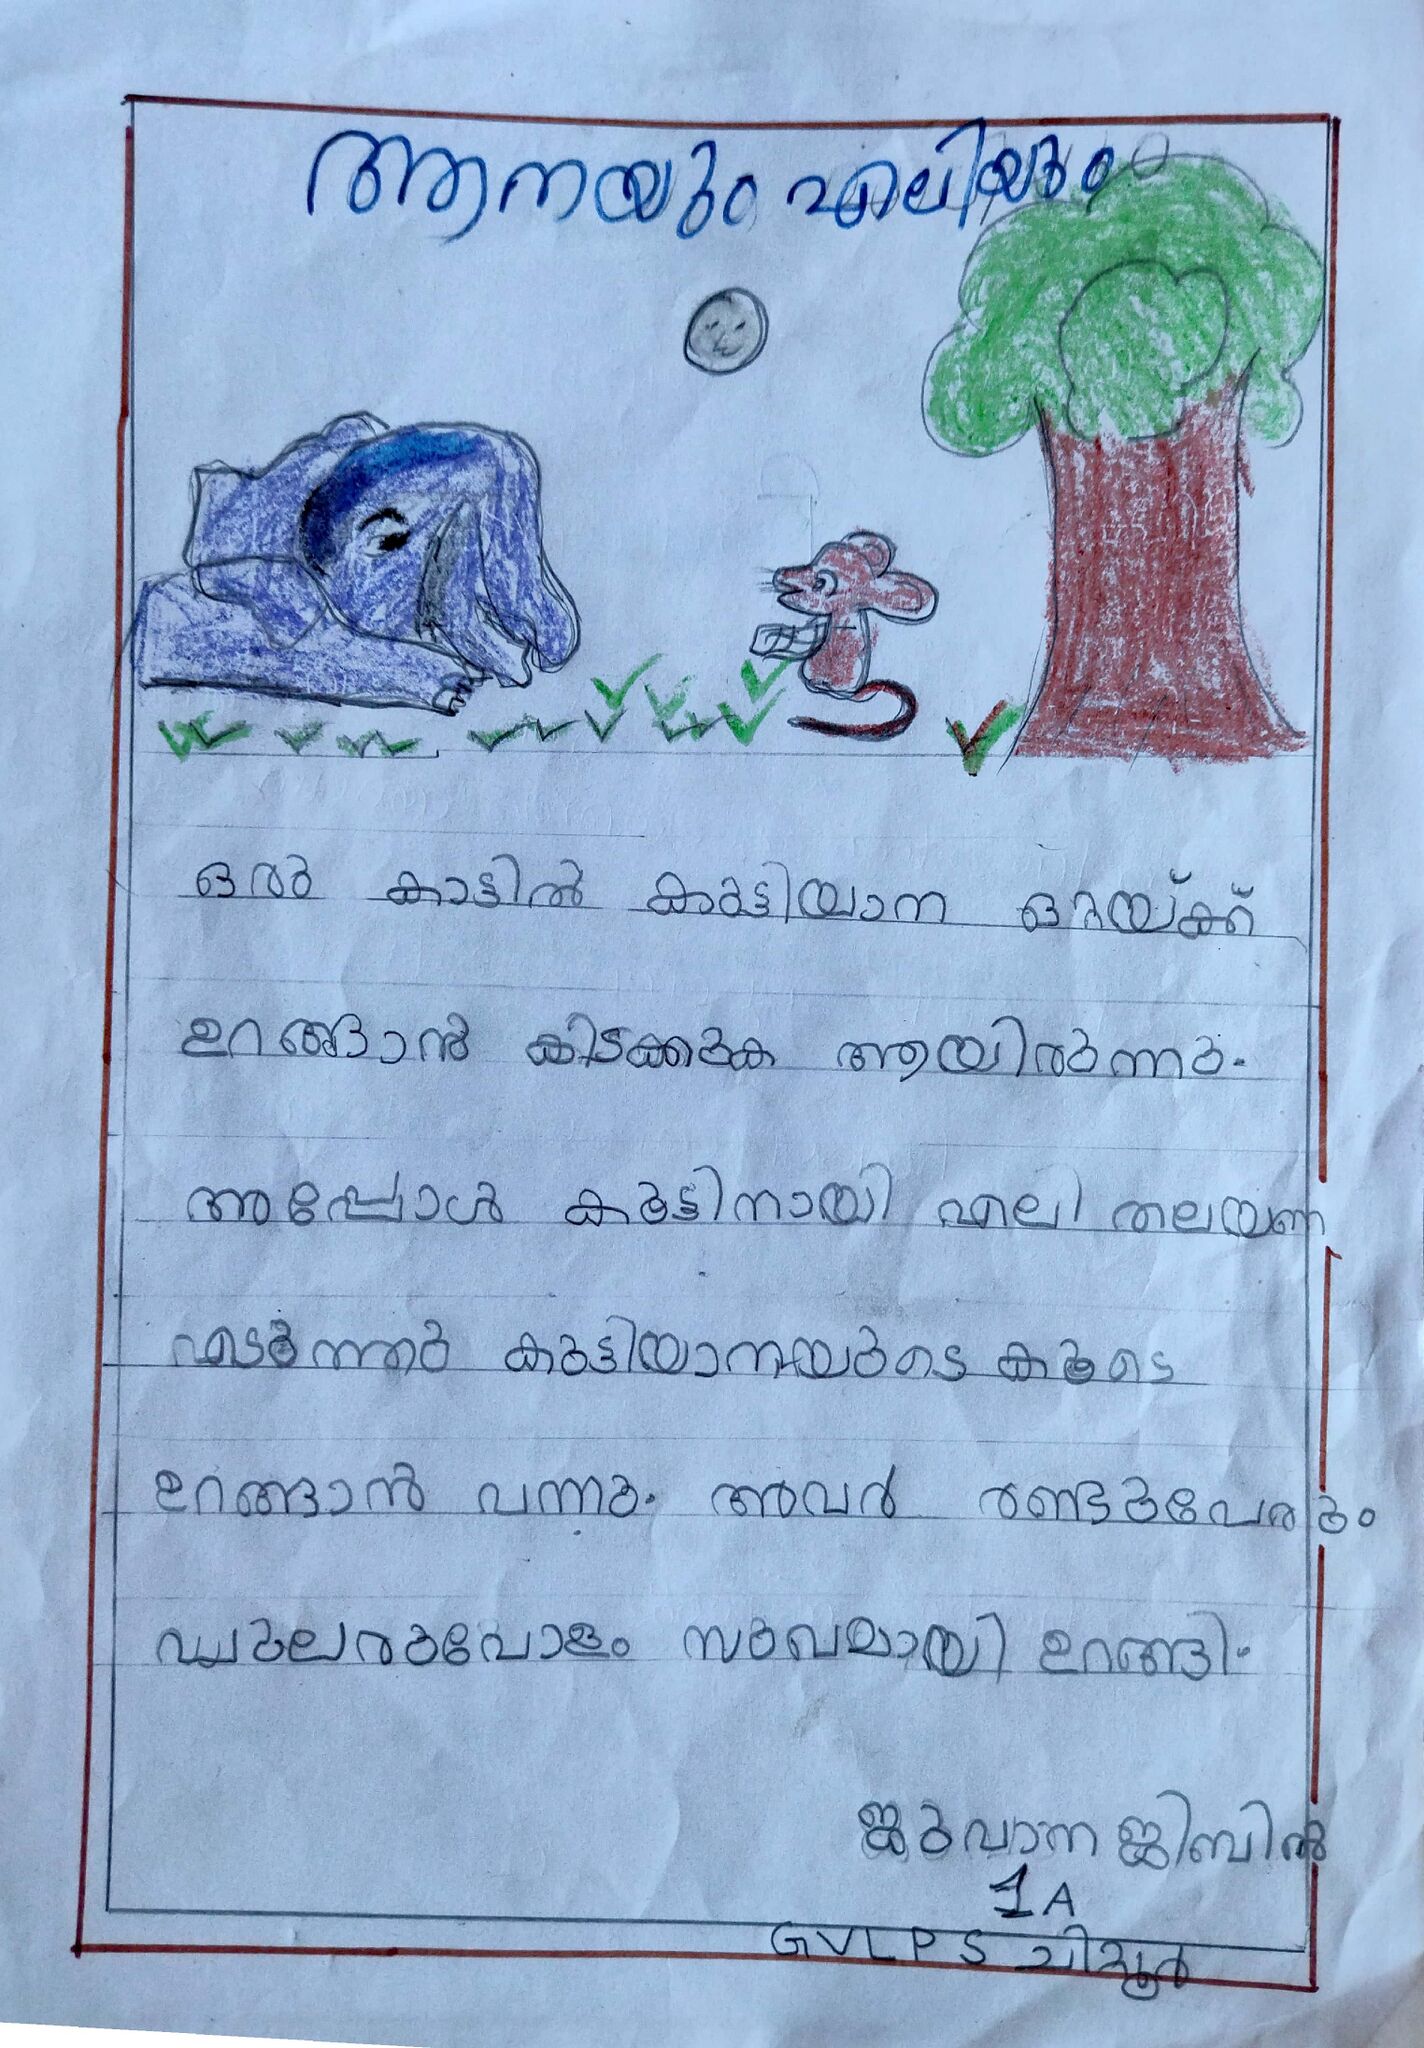 ആനയും എലിയും
ഒരു കാട്ടിൽ കുട്ടിയാന ഒറ്റയ്ക്ക്
ഉറങ്ങാൻ കിടക്കുക ആയിരുന്നു.
അപ്പോൾ കൂട്ടിനായി എലി തലയണ
എടുത്തു കുട്ടിയാനയുടെ കൂടെ
ഉറങ്ങാൻ വന്നു. അവർ രണ്ടുപേരും
പുലരുവോളം സുഖമായി ഉറങ്ങി.
ജുവാന ജിബിൻ
1 A
GVLPS ചിറ്റൂർ